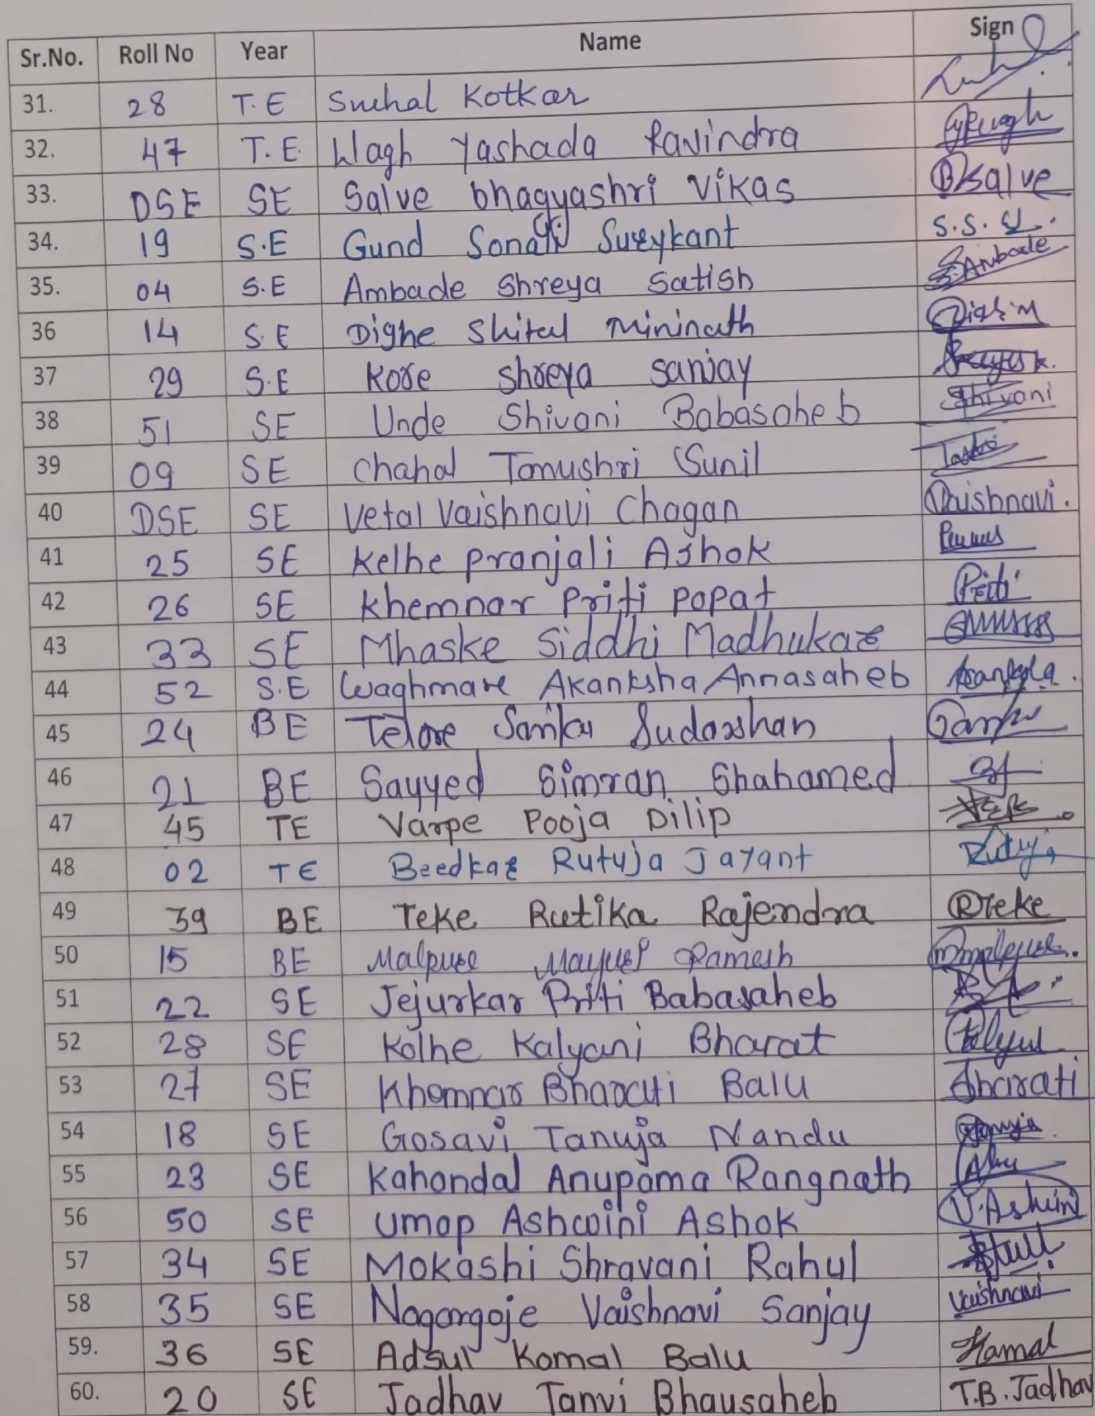 Sr.No. Roll No Year Name Sign
31. 28 T.E Snehal Kotkar
32. 47 T.E. Wagh Yashada Ravindra
33. DSE SE Salve bhagyashri Vikas Bsalve
34. 19 S.E Gund Sonali Sueykant S.S.
35. 04 S.E Ambade Shreya Satish S.Ambade
36 14 S.E Dighe Shital Mininath
37 29 S.E Kore shreya sanjay
38 51 SE Unde Shivani Babasaheb Shivani
39 09 SE Chahal Tanushri Sunil
40 DSE SE Vetal Vaishnavi Chagan Vaishnavi.
41 25 SE Kelhe pranjali Ashok
42 26 SE Khemnar Priti popat Priti
43 33 SE Mhaske Siddhi Madhukar
44 52 S.E Waghmare Akanksha Annasaheb
45 24 BE Telore Sanika Sudarshan
46 21 BE Sayyed Simran Shahamed
47 45 TE Varpe Pooja Dilip
48 02 TE Beedkar Rutuja Jayant
49 39 BE Teke Rutika Rajendra RTeke
50 15 BE Malpure Mayuri Ramesh
51 22 SE Jejurkar Priti Babasaheb
52 28 SE Kolhe Kalyani Bharat
53 27 SE Khemnar Bharati Balu Bharati
54 18 SE Gosavi Tanuja Nandu Tanuja
55 23 SE Kahandal Anupama Rangnath
56 50 SE Umap Ashwini Ashok U.Ashwini
57 34 SE Mokashi Shravani Rahul
58 35 SE Nagargoje Vaishnavi Sanjay Vaishnavi
59. 36 SE Adsul Komal Balu Komal
60. 20 SE Jadhav Tanvi Bhausaheb T.B.Jadhav